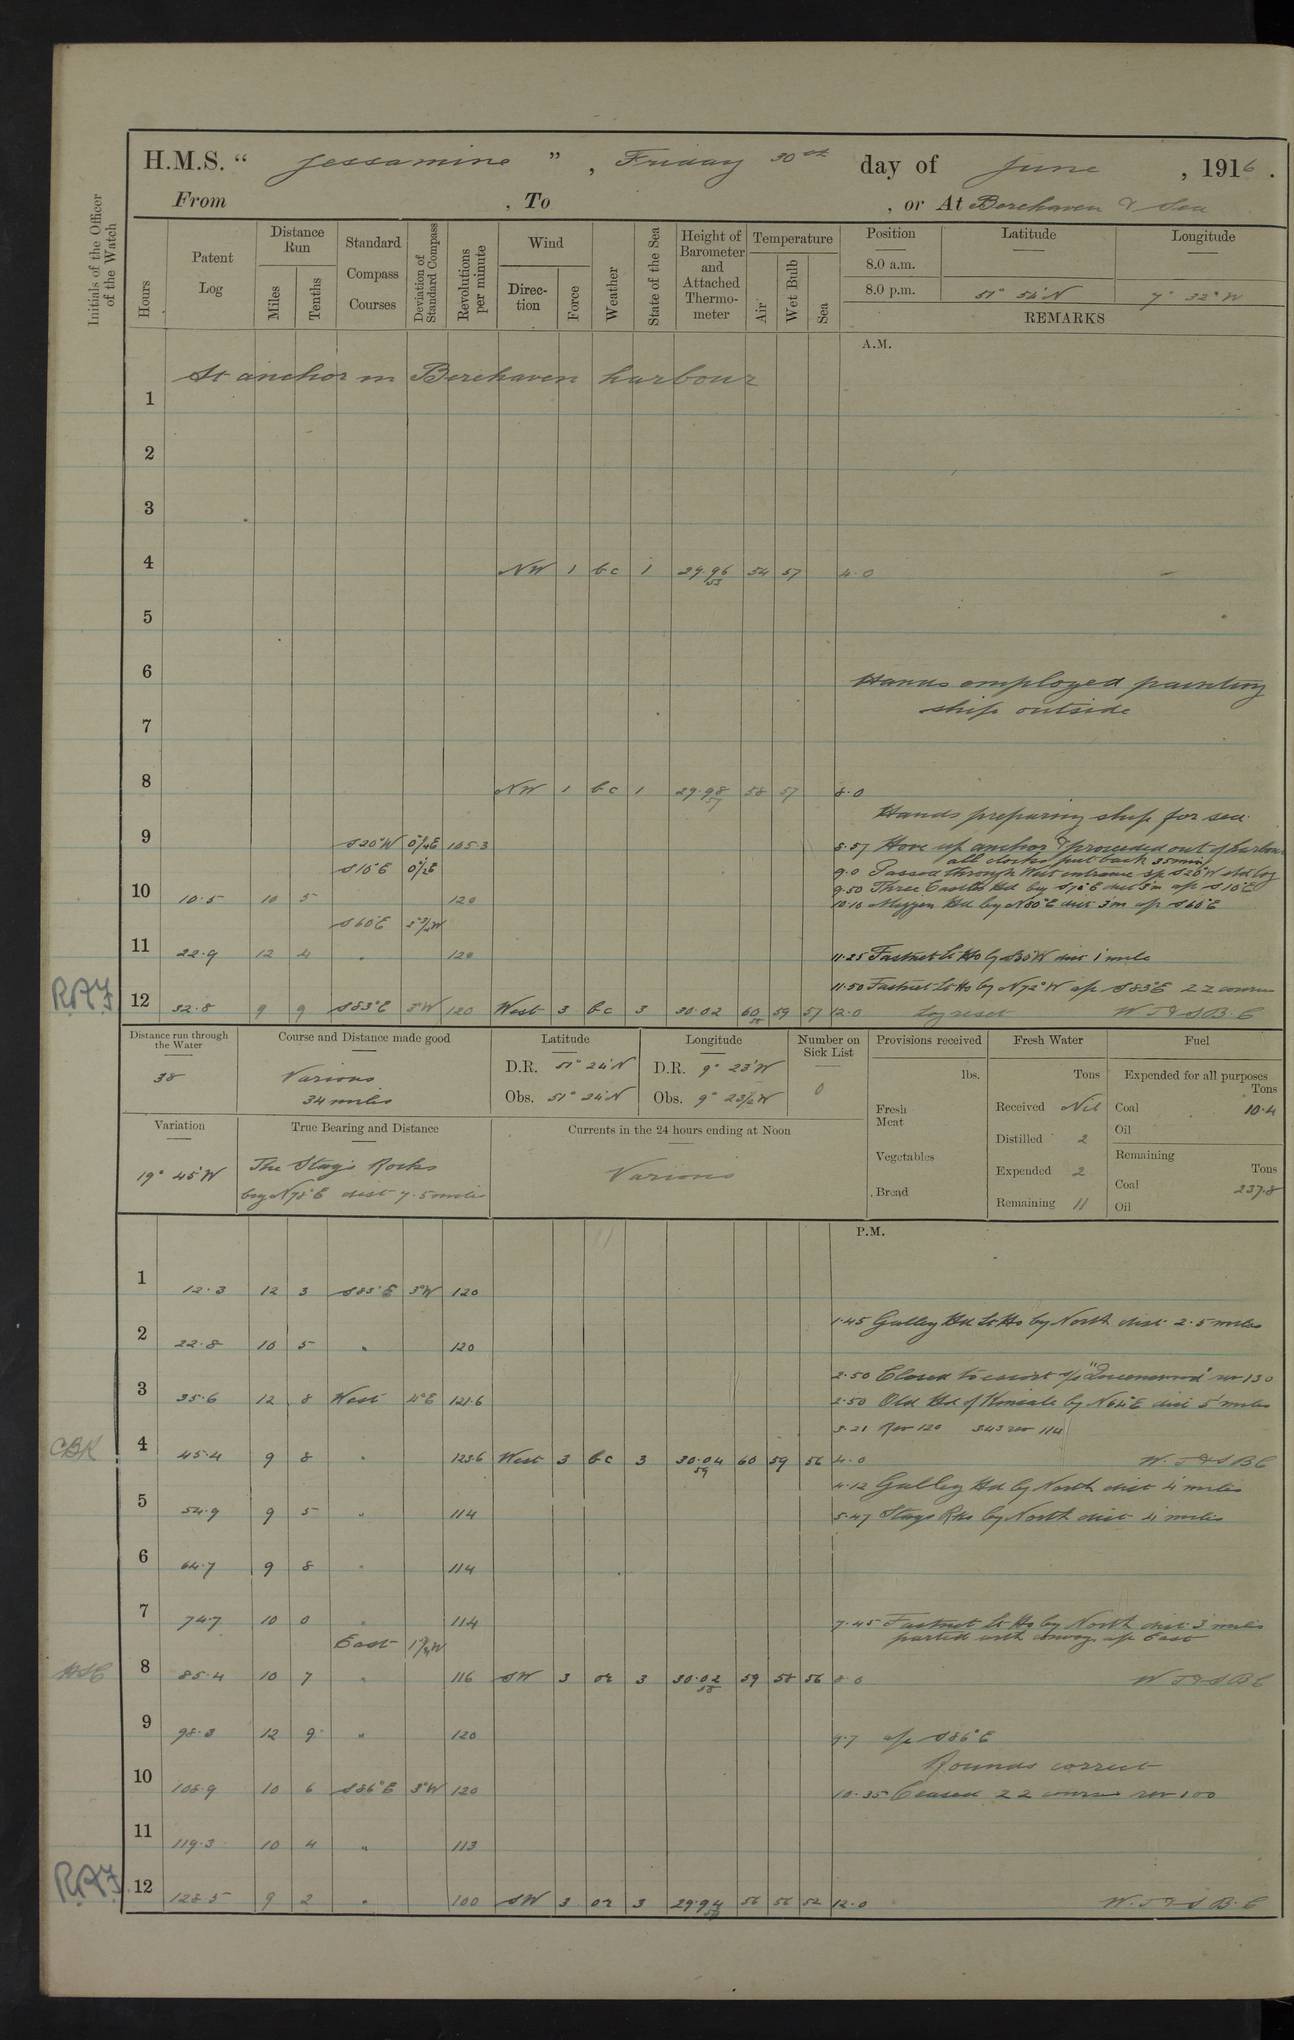 H.M.S. “ Jessamine ” , Friday 30th day of June , 1916 .
From , To , or At Berehaven & Sea
Initials of the Officer of the Watch
Hours
Patent Log
Distance Run
Miles
Tenths
Standard Compass Courses
Deviation of Standard Compass
Revolutions per minute
Wind
Direc-tion
Force
Weather
State of the Sea
Height of Barometer and Attached Thermo-meter
Temperature
Air
Wet Bulb
Sea
Position Latitude Longitude
8.0 a.m.
8.0 p.m. 51° 54'N 7° 32'W
REMARKS
A.M.
At anchor in Berehaven harbour
1
2
3
4 NW 1 bc 1 29.96 53 54 57 4.0
5
6 Hands employed painting
ship outside
7
8 NW 1 bc 1 29.98 57 58 57 8.0
Hands preparing ship for sea.
9 S20°W 105.3 8.57 Hove up anchor & proceeded out of harbour
all clocks put back 35 min
S10°E 9.0 Passed through West entrance a/c S20°W std log
9.50 Three Castle Hd by S10°E dist 3m a/c S10°E
10 10.5 10 5 120 10.10 Mizzen Hd by N80°E dist 3m a/c S60°E
S60°E
11 22.9 12 4 " 120 11.25 Fastnet Lt Ho by S30°W dist 1 mile
11.50 Fastnet Lt Ho by N72°W a/c S83°E ZZ courses
RAJ 12 32.8 9 9 S83°E 3°W 120 West 3 bc 3 30.02 60 59 57 12.0 Log reset W.J & S B.C
Distance run through the Water
38
Course and Distance made good
Various
34 miles
Latitude
D.R. 51° 24'N
Obs. 51° 24'N
Longitude
D.R. 9° 23'W
Obs. 9° 23½'W
Number on Sick List
0
Provisions received
lbs.
Fresh Meat
Vegetables
Bread
Fresh Water
Tons
Received Nil
Distilled 2
Expended 2
Remaining 11
Fuel
Expended for all purposes
Tons
Coal 10.4
Oil
Remaining
Tons
Coal 237.8
Oil
Variation
19° 45'W
True Bearing and Distance
The Stags Rocks
by N78°E dist 7.5 miles
Currents in the 24 hours ending at Noon
Various
P.M.
1 12.3 12 3 S83°E 3°W 120
1.45 Galley Hd Lt Ho by North dist 2.5 miles
2 22.8 10 5 " 120
2.50 Closed to escort s/s "Queenswood" rev 130
3 35.6 12 8 West 4°E 121.6 2.50 Old Hd of Kinsale by N64°E dist 5 miles
3.21 Rev 120 3.43 rev 114
CBK 4 45.4 9 8 " 123.6 West 3 bc 3 30.04 59 60 59 56 4.0 W.J & S B C
4.12 Galley Hd by North dist 4 miles
5 54.9 9 5 " 114 5.47 Stags Rks by North dist 4 miles
6 64.7 9 8 " 114
7 74.7 10 0 " 114 7.45 Fastnet Lt Ho by North dist 3 miles
parted with convoy a/c East
East
8 85.4 10 7 " 116 SW 3 or 3 30.02 58 59 58 56 8.0 W J & S B C
9 98.3 12 9 " 120 9.7 a/c S86°E
Rounds correct
10 108.9 10 6 S86°E 3°W 120 10.35 Ceased ZZ courses rev 100
11 119.3 10 4 " 113
RAJ 12 128.5 9 2 " 100 SW 3 or 3 29.94 56 56 52 12.0 W.J & S B.C